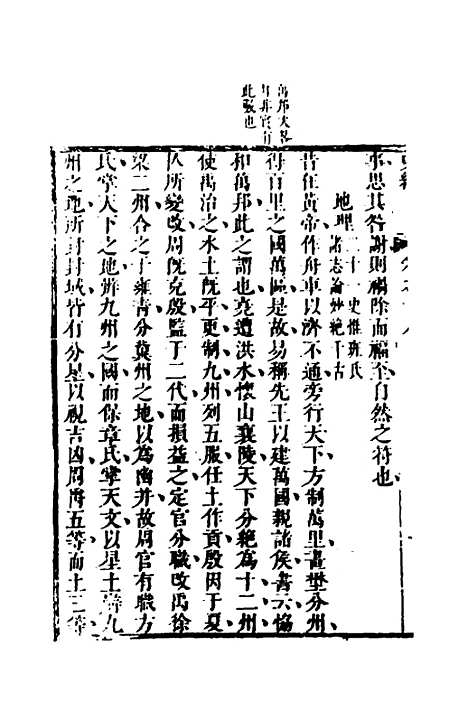 萬邦大畧
此數也
事思其咎謝則禍除而福至自然之符也
地理二十一史惟班氏
諸志論妙絶千古
昔在黃帝作舟車以濟不通旁行天下方制萬里畫壄分州
得百里之國萬區是故易稱先王以建萬國親諸侯書云協
和萬邦此之謂也堯遭洪水懷山襄陵天下分絶爲十二州
使禹治之水土既平更制九州列五服任土作貢殷因于夏
所變改周既克殷監于二代而損益之定官分職改禹徐
梁二州合之于雍青分冀州之地以爲幽并故周官有職方
氏掌天下之地辨九州之國而保章氏掌天文以星土辨九
州之地所封封域皆有分星以視吉凶周爵五等而土三等